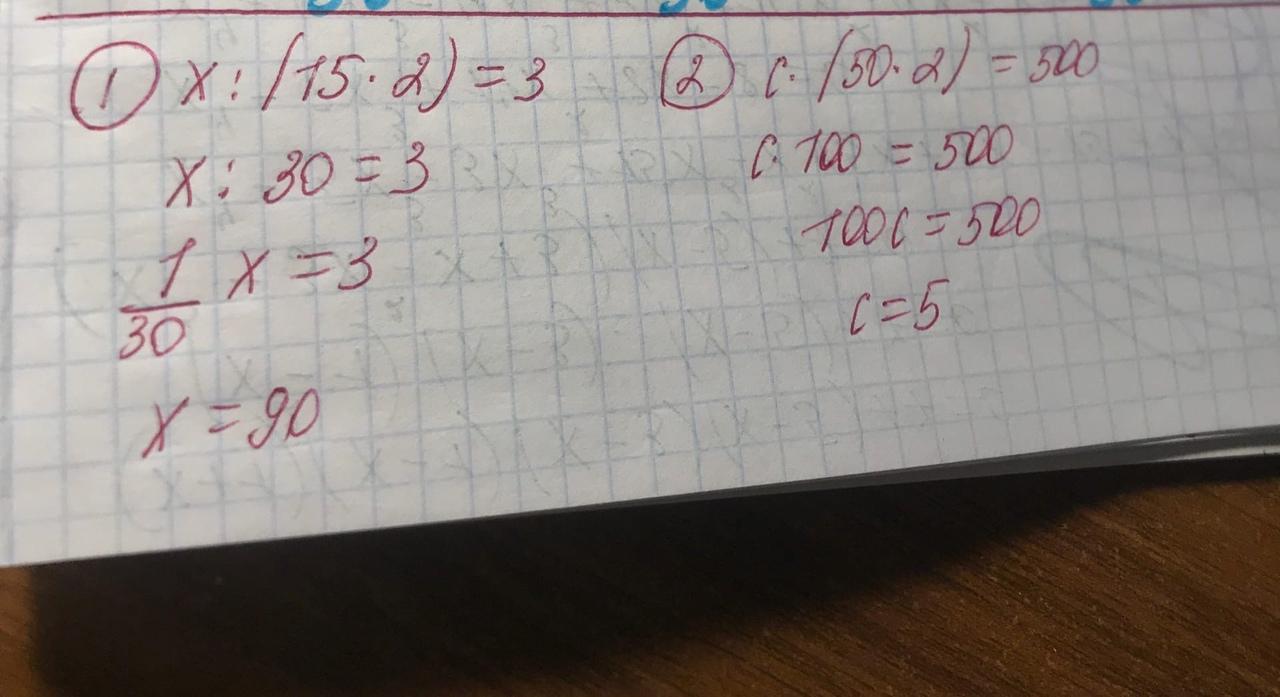 ① x : (15 · 2) = 3
x : 30 = 3
1/30 x = 3
x = 90
② c · (50 · 2) = 500
c · 100 = 500
100c = 500
c = 5